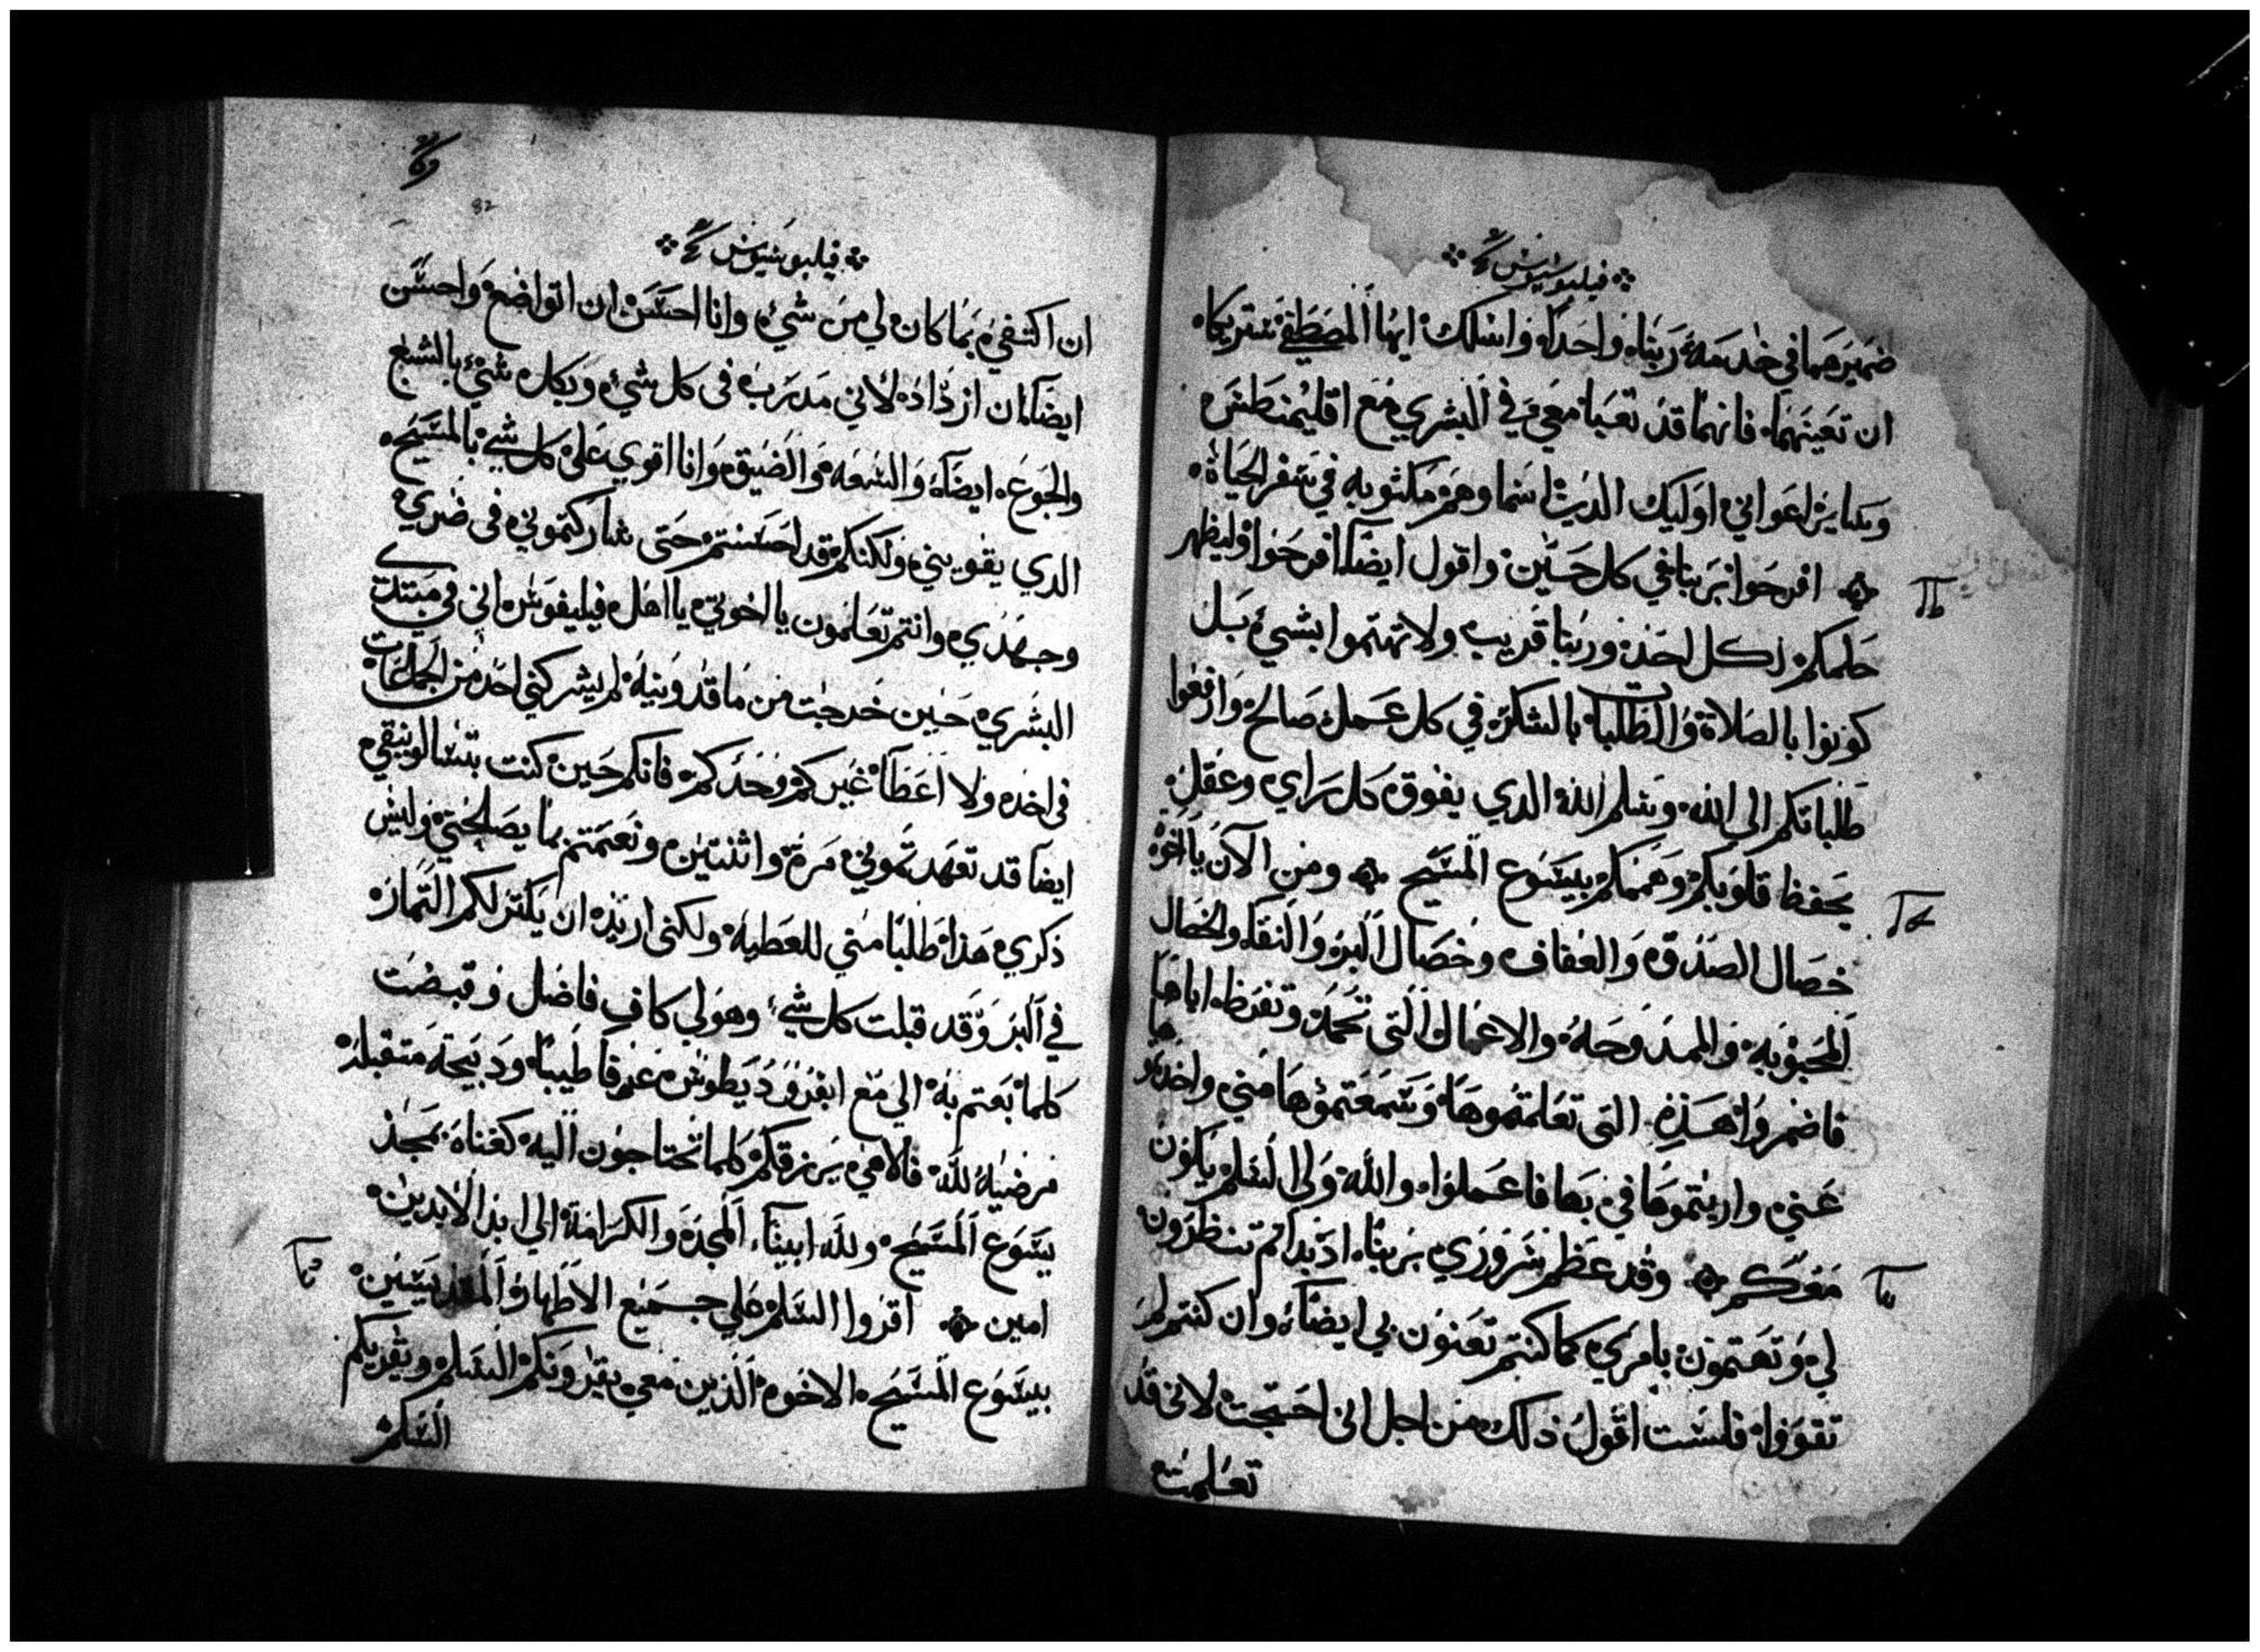 فيلبوسيوس
ضميرهما في خدمة ربنا واحدا واسلك ايها المصطفى شريكاه
ان تعينهما فانهما قد تعبا معي في البشري مع اقليمنطس
وساير اعواني اوليك الدين اسما وهم مكتوبه في سفر الحياة
افرحوا بربنا في كل حين واقول ايضا افرحوا وليظهر
حلمكم لكل احد وربنا قريب ولا تهتموا بشيء بل
كونوا بالصلاة والطلبات بالشكر في كل عمل صالح وارفعوا
طلباتكم الي الله وسلم الله الدي يفوق كل راي وعقل
يحفظ قلوبكم وهممكم بيسوع المسيح ومن الآن يا اخوة
خصال الصدق والعفاف وخصال البر والنقا والخصال
المحبوبه والممدوحه والاعمال التي تحمد وتقرظ اياها
فاضمروا هذه التي تعلمتموها وسمعتموها مني واخدتموها
عني واريتموها في بها فاعملوا والله ولي السلم يكون
معكم وقد عظم سروري بربنا اد بداتم تنظرون
لي وتهتمون بامري كما كنتم تعنون بي ايضا وان كنتم لم
تقووا فلست اقول ذلك من اجل اني احتجت لاني قد
تعلمت
82
فيلبوسيوس
ان اكتفي بما كان لي من شيء وانا احسن ان اتواضع واحسن
ايضا ان ازداد لاني مدرب في كل شيء وبكل شيء بالشبع
والجوع ايضا والسعه والضيق وانا اقوي على كل شي بالمسيح
الدي يقويني ولكنكم قد احسنتم حتى شاركتموني في ضري
وجهدي وانتم تعلمون يا اخوتي يا اهل فيليفوس اني في مبتدي
البشري حين خرجت من ماقدونيه لم يشركني احد من الجماعات
في اخد ولا اعطا غيركم وحدكم فانكم حين كنت بتسالونيقي
ايضا قد تعهدتموني مرة واثنتين ونعمتم بما يصلحني وليس
ذكري هذا طلبا مني للعطيه ولكني اريد ان يكثر لكم الثمار
في البر وقد قبلت كل شي وهو لي كاف فاضل وقبضت
كلما بعتم به الي مع ابفروديطوس عرفا طيبا ودبيحة متقبلة
مرضيه لله فالاهي يرزقكم كلما تحتاجون اليه كغناه بمجد
يسوع المسيح ولله ابينا المجد والكرامة الي ابد الابدين
امين اقروا السلم علي جميع الاطهار والقديسين
بيسوع المسيح الاخوه الذين معي يقرونكم السلم ويقريكم
السلم